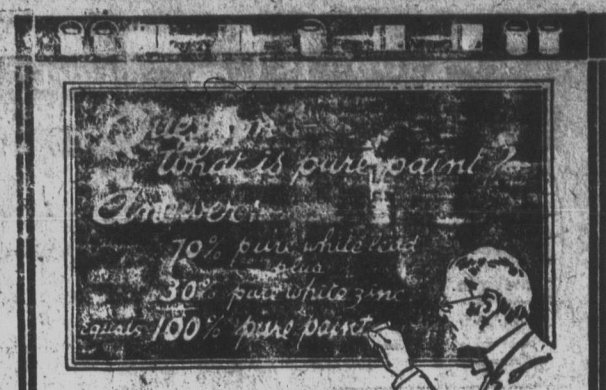 Question:
What is pure paint?
Answer:
70% pure white lead
plus
30% pure white zinc
Equals 100% pure paint